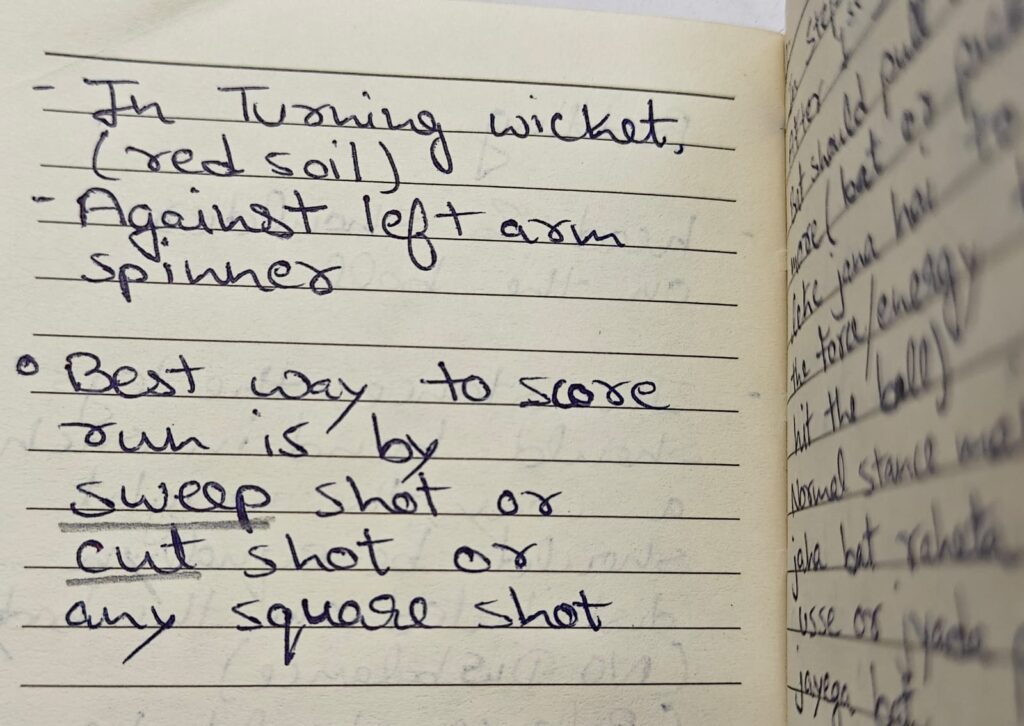 - In Turning wicket,
(red soil)
- Against left arm
spinner
• Best way to score
run is by
sweep shot or
cut shot or
any square shot
step
bat should pull
more (bat or
leke jana hai to
the force/energy
hit the ball)
Normal stance
jaha bat raheta
usse or jyada
jayega bat